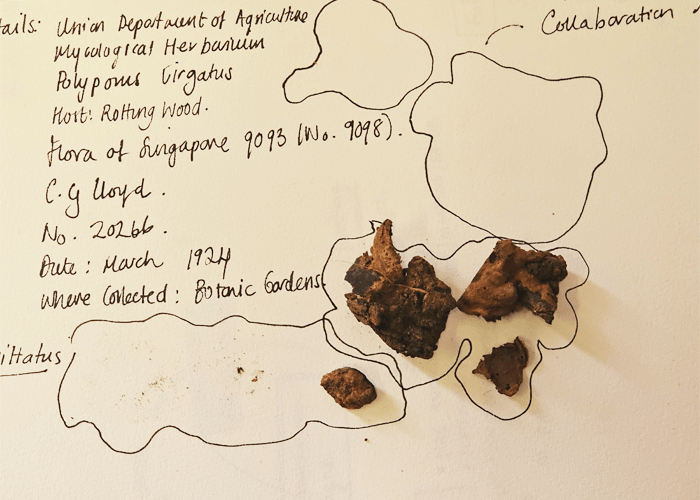 tails: Union Department of Agriculture
Mycological Herbarium
Polyporus Virgatus
Host: Rotting Wood.
Flora of Singapore 9093 (No. 9098).
C.G Lloyd.
No. 20266.
Date: March 1924
Where Collected: Botanic Gardens.
Collaboration
ittatus